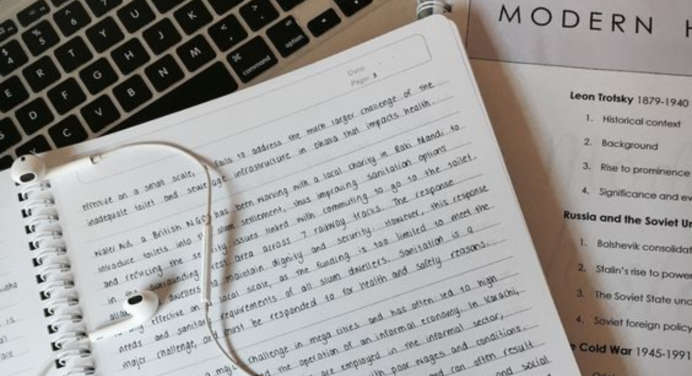 $ 4 % 5 ^ 6 & 7 * 8
E R T Y U I
D F G H J K L
C V B N M
command option
Date:
Page:
effective on a small scale, fails to address the much larger challenge of the
inadequate toilet and sewerage infrastructure in Dhaka that impacts health.
Water Aid, a British NGO has been working with a local charity in to
introduce toilets into slum settlement, thus improving sanitation options
and reducing the security issues linked with commuting to go to the toilet
in the surrounding area across 7 railway tracks. The response
dwellers to maintain dignity and security. However, this response
is only effective on local scale, as the funding is too limited to meet the
needs and sanitary requirements of all slum dwellers. Sanitation is a
major challenge, and must be responded to for health and safety reasons.
a major challenge in mega cities and has often led to high
the operation of an informal economy. In Karachi,
are employed in the informal sector,
with poor wages and conditions.
and can often result
and social
MODERN H
Leon Trotsky 1879-1940
1. Historical context
2. Background
3. Rise to prominence
4. Significance and ev
Russia and the Soviet Un
1. Bolshevik consolidat
2. Stalin's rise to powe
3. The Soviet State und
4. Soviet foreign policy
e Cold War 1945-1991